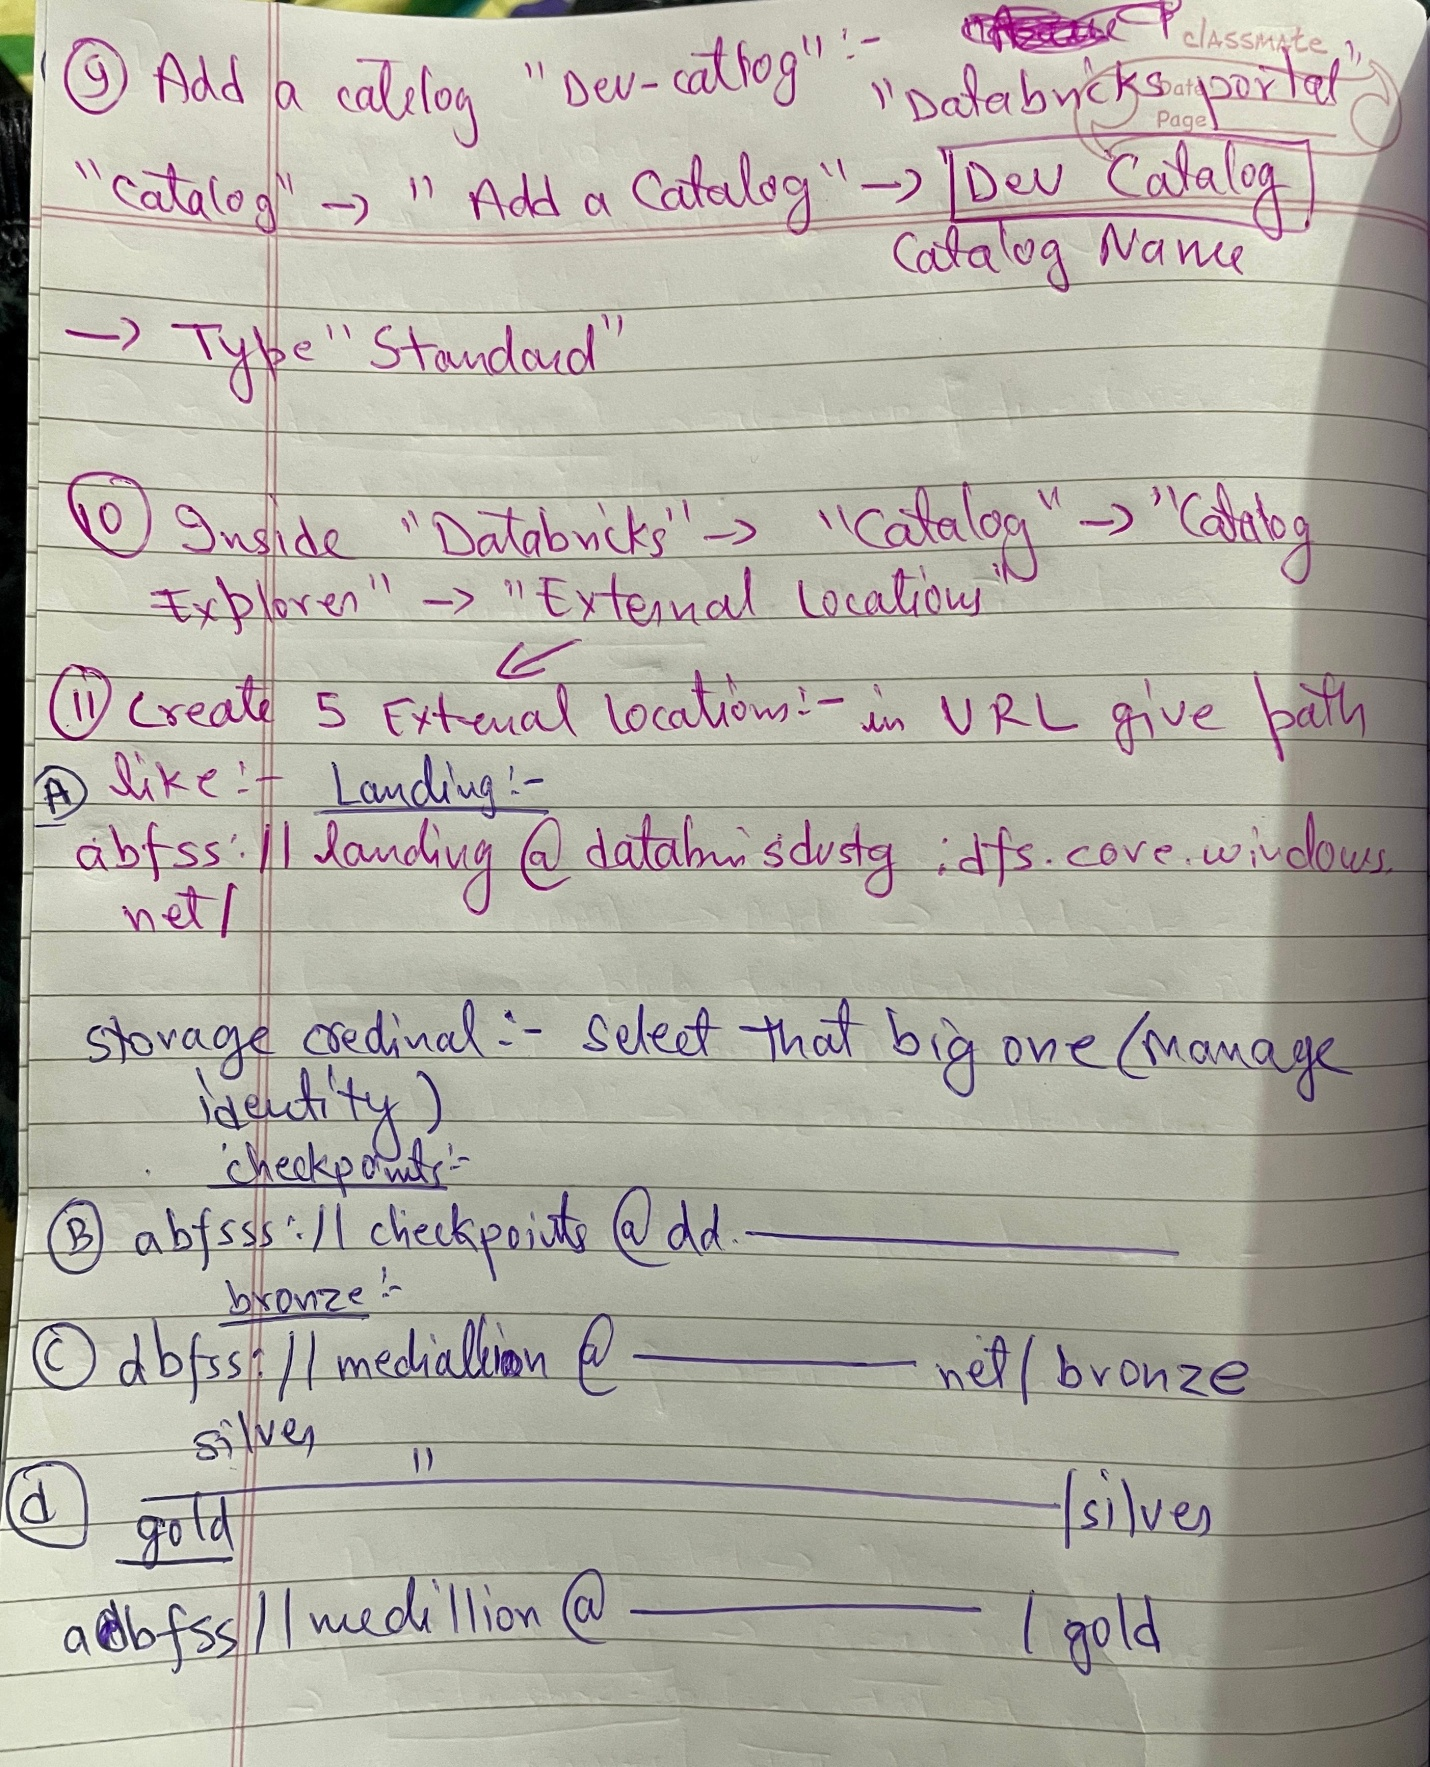 classmate
Date
Page
⑨ Add a catelog "Dev-catlog" :- "Databricks portal"
"Catalog" → "Add a Catalog" → Dev Catalog
Catalog Name
→ Type "Standard"
⑩ Inside "Databricks" → "Catalog" → "Catalog
Explorer" → "External Locations"
↙
⑪ Create 5 External locations:- in URL give path
Ⓐ like:- Landing:-
abfss://landing@ .dfs.core.windows.
net/
storage credinal:- select that big one (manage
identity)
checkpoints:-
Ⓑ abfsss://checkpoints@dd.
bronze:-
Ⓒ abfss://mediallion@ net/bronze
silver
ⓓ " /silver
gold
abfss//medillion@ /gold